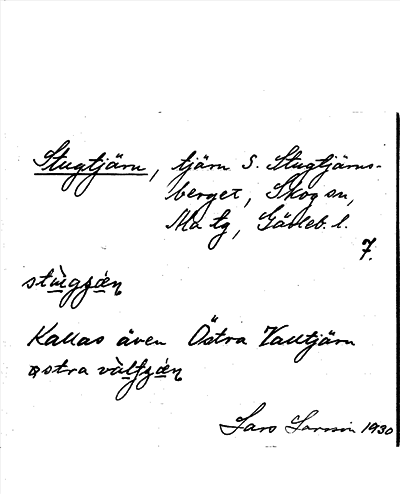 Stugtjärn, tjärn S. Stugtjärns-
berget, Skog sn,
Ma tg, Gävleb. l.
7.
stùgʒǽn
Kallas även Östra Valltjärn
østra vàltʒǽn
Lars Larsson 1930